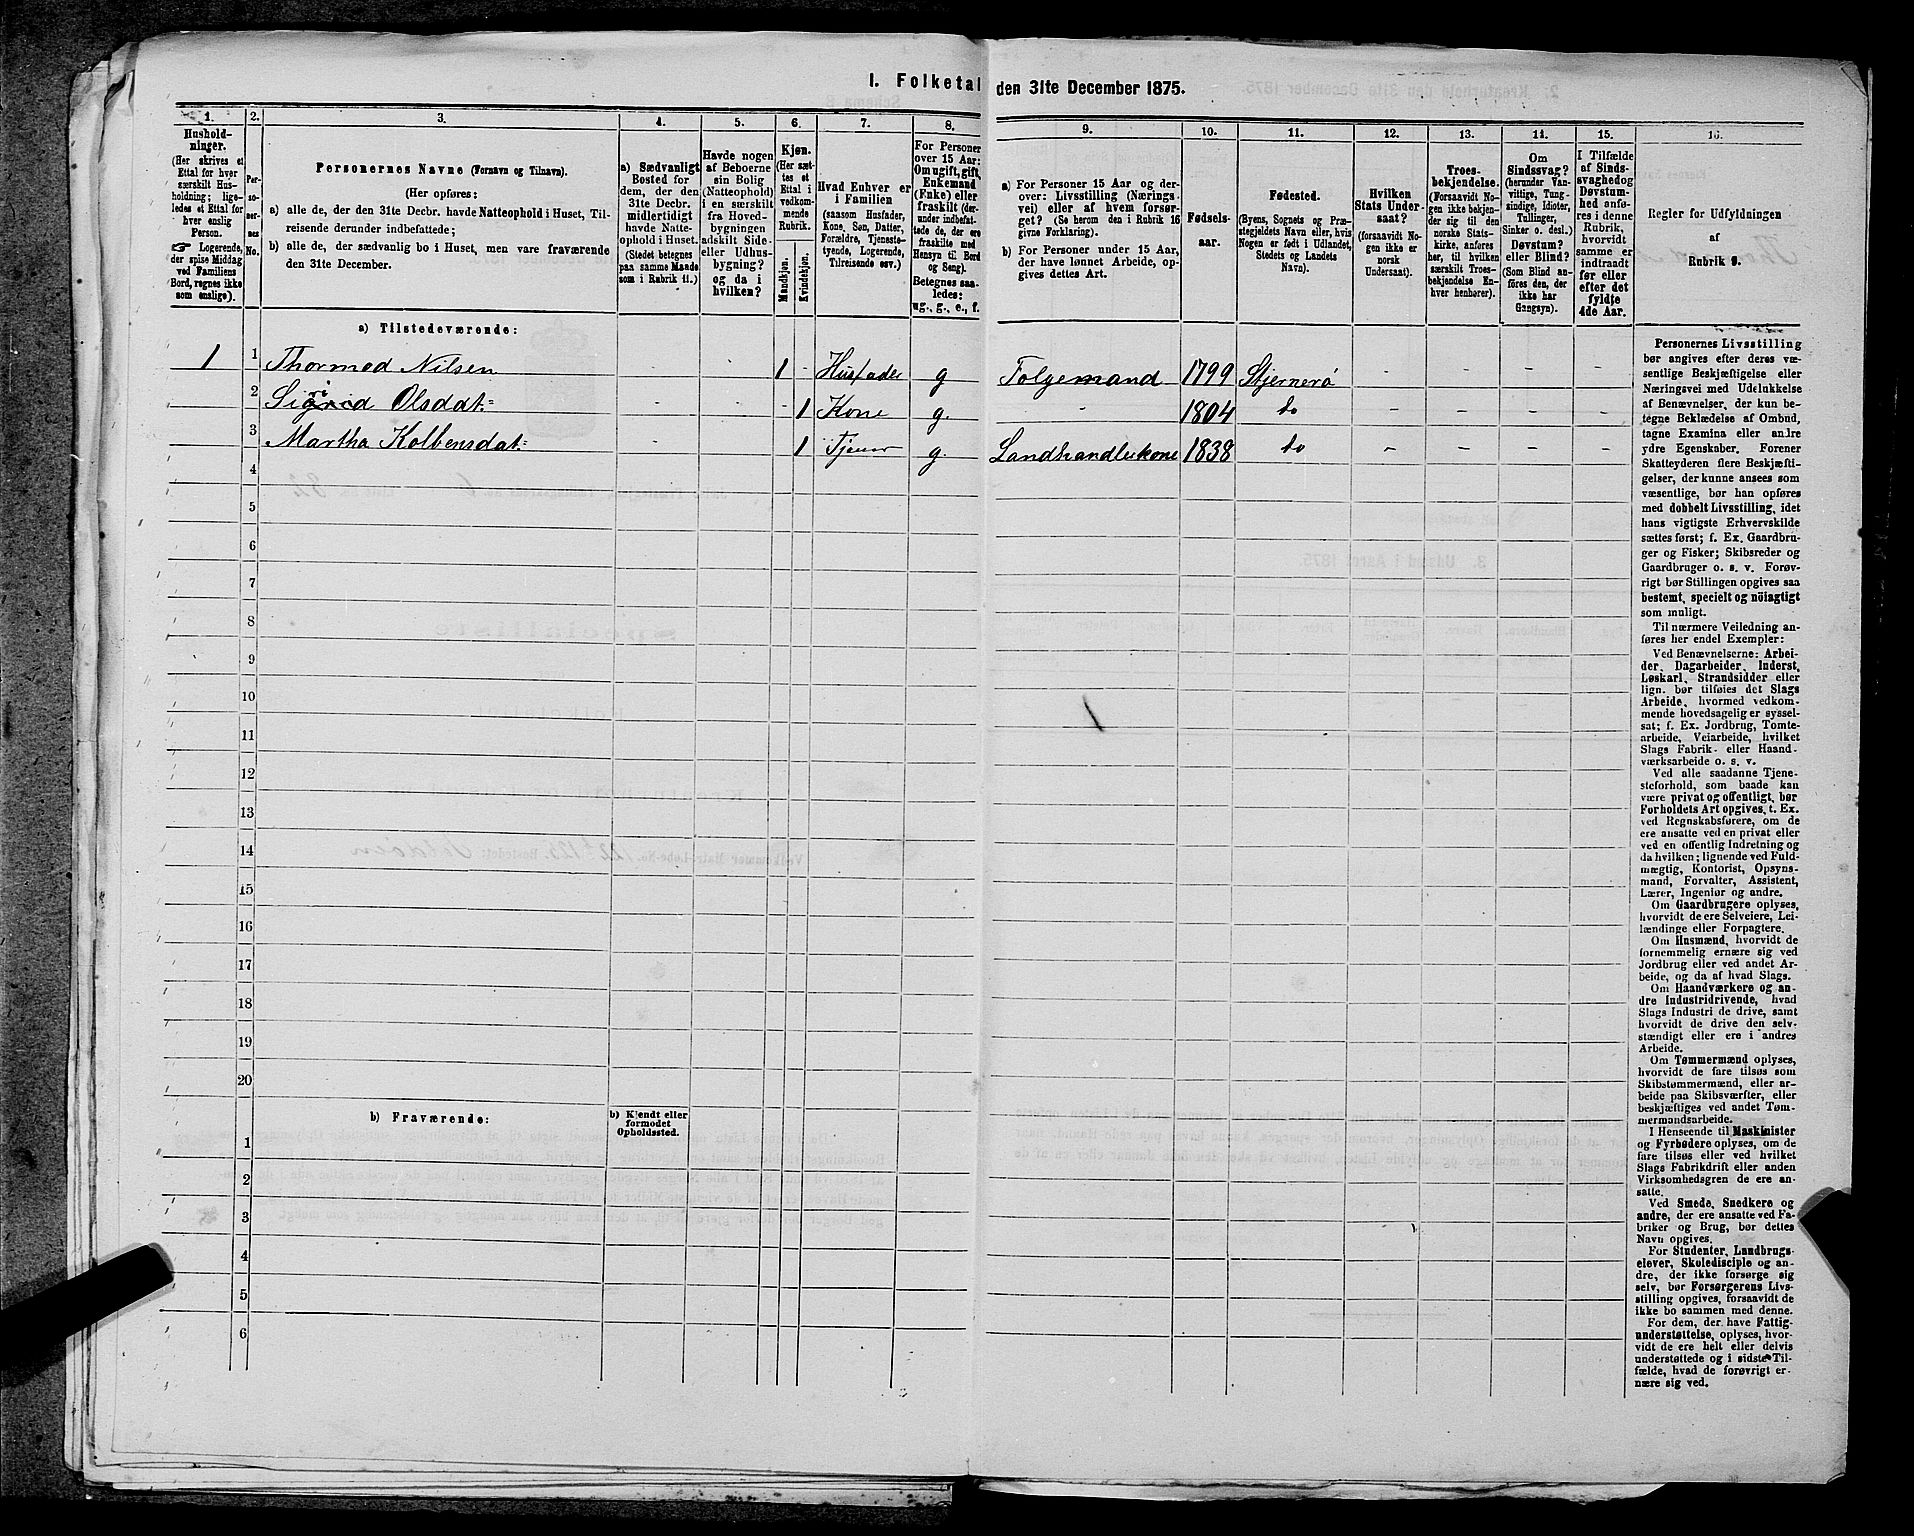 I. Folketal den 31te December 1875.
1.
Hushold-
ninger.
(Her skrives et
Ettal for hver
særskilt Hus-
holdning; lige-
ledes et Ettal for
hver enslig
Person.
☞ Logerende,
der spise Middag
ved Familiens
Bord, regnes ikke
som enslige).
2.
Per-
so-
ner-
nes
No.
3.
Personernes Navne (Fornavn og Tilnavn).
(Her opføres:
a) alle de, der den 31te Decbr. havde Natteophold i Huset, Til-
reisende derunder indbefattede;
b) alle de, der sædvanlig bo i Huset, men vare fraværende
den 31te December.
4.
a) Sædvanligt
Bosted for
dem, der den
31te Decbr.
midlertidigt
havde Natte-
ophold i Huset.
(Stedet betegnes
paa samme Maade
som i Rubrik 11.)
5.
Havde nogen
af Beboerne
sin Bolig
(Natteophold)
i en særskilt
fra Hoved-
bygningen
adskilt Side-
eller Udhus-
bygning?
og da i
hvilken?
6.
Kjøn.
(Her sæt-
tes et
Ettal i
vedkom-
mende
Rubrik.
Mandkjøn.
Kvindekjøn.
7.
Hvad Enhver er
i Familien
(saasom Husfader,
Kone, Søn, Datter,
Forældre, Tjeneste-
tyende, Logerende,
Tilreisende osv.)
8.
For Personer
over 15 Aar:
Om ugift, gift,
Enkemand
(Enke) eller
fraskilt (der-
under indbefat-
tede de, der ere
fraskilte med
Hensyn til Bord
og Seng).
Betegnes saa-
ledes:
ug., g., e., f.
9.
a) For Personer 15 Aar og der-
over: Livsstilling (Nærings-
vei) eller af hvem forsør-
get? (Se herom den i Rubrik 16
givne Forklaring).
b) For Personer under 15 Aar,
der have lønnet Arbeide, op-
gives dettes Art.
10.
Fødsels-
aar.
11.
Fødested.
(Byens, Sognets og Præ-
stegjeldets Navn eller, hvis
Nogen er født i Udlandet,
Stedets og Landets
Navn).
12.
Hvilken
Stats Under-
saat?
(forsaavidt No-
gen ikke er
norsk
Undersaat).
13.
Troes-
bekjendelse.
(Forsaavidt No-
gen ikke bekjen-
der sig til den
norske Stats-
kirke, anføres
her, til hvilken
særskilt Troes-
bekjendelse En-
hver henhører).
14.
Om
Sindssvag?
(herunder Van-
vittige, Tung-
sindige, Idioter,
Tullinger,
Sinker o. desl.)
Døvstum?
eller Blind?
(Som Blind an-
føres den, der
ikke har
Gangsyn).
15.
I Tilfælde
af Sinds-
svaghed og
Døvstum-
hed anfø-
res i denne
Rubrik,
hvorvidt
samme er
indtraadt
før eller
efter det
fyldte
4de Aar.
16.
Regler for Udfyldningen
af
Rubrik 9.
a) Tilstedeværende:
1 1 Thormod Nilsen - - 1 - Husfader g Folgemand 1799 Stjernerø - - - -
2 Sigrid Olsdat: - - 1 Kone g. - 1804 do - - - -
3 Martha Kolbensdat: - - 1 Tjener g. Landhandlerkone 1838 do - - - -
4
5
6
7
8
9
10
11
12
13
14
15
16
17
18
19
20
b) Fraværende:
b) Kjendt eller
formodet
Opholdssted.
1
2
3
4
5
6
Personernes Livsstilling
bør angives efter deres væ-
sentlige Beskjæftigelse eller
Næringsvei med Udelukkelse
af Benævnelser, der kun be-
tegne Beklædelse af Ombud,
tagne Examina eller andre
ydre Egenskaber. Forener
Skatteyderen flere Beskjæfti-
gelser, der kunne ansees som
væsentlige, bør han opføres
med dobbelt Livsstilling, idet
hans vigtigste Erhvervskilde
sættes først; f. Ex. Gaardbru-
ger og Fisker; Skibsreder og
Gaardbruger o. s. v. Forøv-
rigt bør Stillingen opgives saa
bestemt, specielt og nöiagtigt
som muligt.
Til nærmere Veiledning an-
føres her endel Exempler:
Ved Benævnelserne: Arbei-
der, Dagarbeider, Inderst,
Løskarl, Strandsidder eller
lign. bør tilføies det Slags
Arbeide, hvormed vedkom-
mende hovedsagelig er syssel-
sat; f. Ex. Jordbrug, Tomte-
arbeide, Veiarbeide, hvilket
Slags Fabrik- eller Haand-
værksarbeide o. s. v.
Ved alle saadanne Tjene-
steforhold, som baade kan
være privat og offentligt, bør
Forholdets Art opgives, t. Ex.
ved Regnskabsførere, om de
ere ansatte ved en privat eller
ved en offentlig Indretning og
da hvilken; lignende ved Fuld-
mægtig, Kontorist, Opsyns-
mand, Forvalter, Assistent,
Lærer, Ingeniør og andre.
Om Gaardbrugere oplyses,
hvorvidt de ere Selveiere, Lei-
lændinge eller Forpagtere.
Om Husmænd, hvorvidt de
fornemmelig ernære sig ved
Jordbrug eller ved andet Ar-
beide, og da af hvad Slags.
Om Haandværkere og an-
dre Industridrivende, hvad
Slags Industri de drive, samt
hvorvidt de drive den selv-
stændigt eller ere i andres
Arbeide.
Om Tømmermænd oplyses,
hvorvidt de fare tilsøs som
Skibstømmermænd, eller ar-
beide paa Skibsværfter, eller
beskjæftiges ved andet Tøm-
mermandsarbeide.
I Henseende til Maskinister
og Fyrbødere oplyses, om de
fare tilsøs eller ved hvilket
Slags Fabrikdrift eller anden
Virksomhedsgren de ere an-
satte.
Ved Smede, Snedkere og
andre, der ere ansatte ved Fa-
briker og Brug, bør dettes
Navn opgives.
For Studenter, Landbrugs-
elever, Skoledisciple og an-
dre, der ikke forsørge sig
selv, bør Forsørgerens Livs-
stilling opgives, forsaavidt de
ikke bo sammen med denne.
For dem, der have Fattig-
understøttelse, oplyses, hvor-
vidt de ere helt eller delvis
understøttede og i sidste Til-
fælde, hvad de forøvrigt er-
nære sig ved.